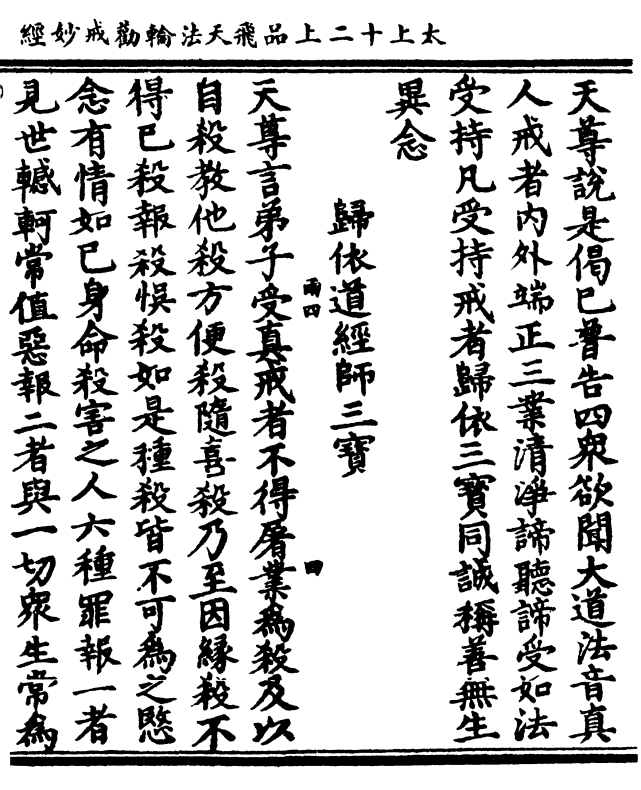 太上十二上品飛天法輪勸戒妙經
天尊說是偈已普告四衆欲聞大道法音真
人戒者內外端正三業清淨諦聽諦受如法
受持凡受持戒者歸依三寶同誠稱善無生
異念
歸依道經師三寶
雨四
四
天尊言弟子受真戒者不得屠業為殺及以
自殺教他殺方便殺隨喜殺乃至因緣殺不
得已殺報殺悞殺如是種殺皆不可為之愍
念有情如已身命殺害之人六種罪報一者
見世轗軻常值惡報二者與一切衆生常為